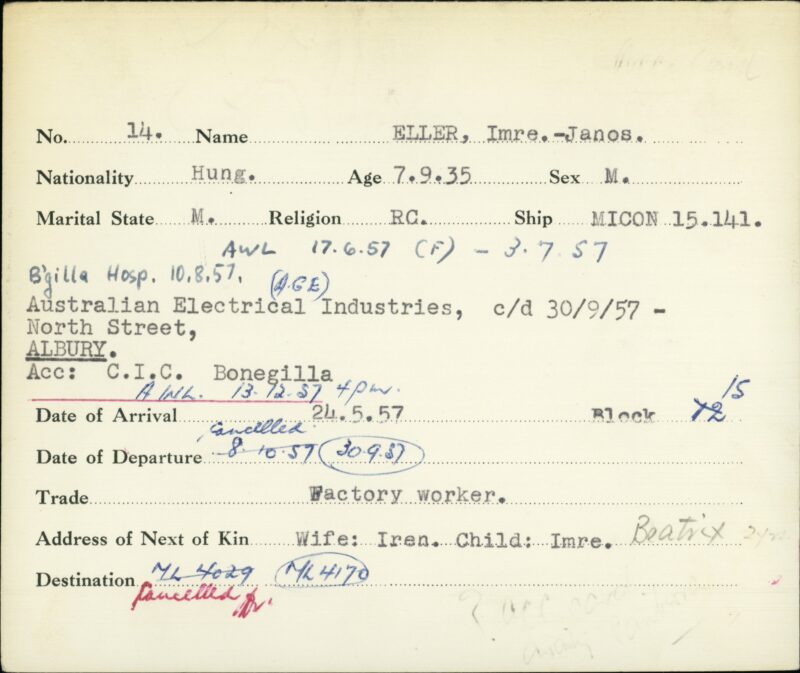 No. 14. Name ELLER, Imre.-Janos.
Nationality Hung. Age 7.9.35 Sex M.
Marital State M. Religion RC. Ship MICON 15.141.
AWL 17.6.57 (F) - 3.7.57
B'gilla Hosp. 10.8.57. (AGE)
Australian Electrical Industries, c/d 30/9/57 -
North Street,
ALBURY.
Acc: C.I.C. Bonegilla
AWL. 13.12.57 4pm.
15
Date of Arrival 24.5.57 Block 12
Cancelled
Date of Departure 8-10-57 30.9.57
Trade Factory worker.
Address of Next of Kin Wife: Iren. Child: Imre. Beatrix
Destination ML 4029 ML 4170
Cancelled